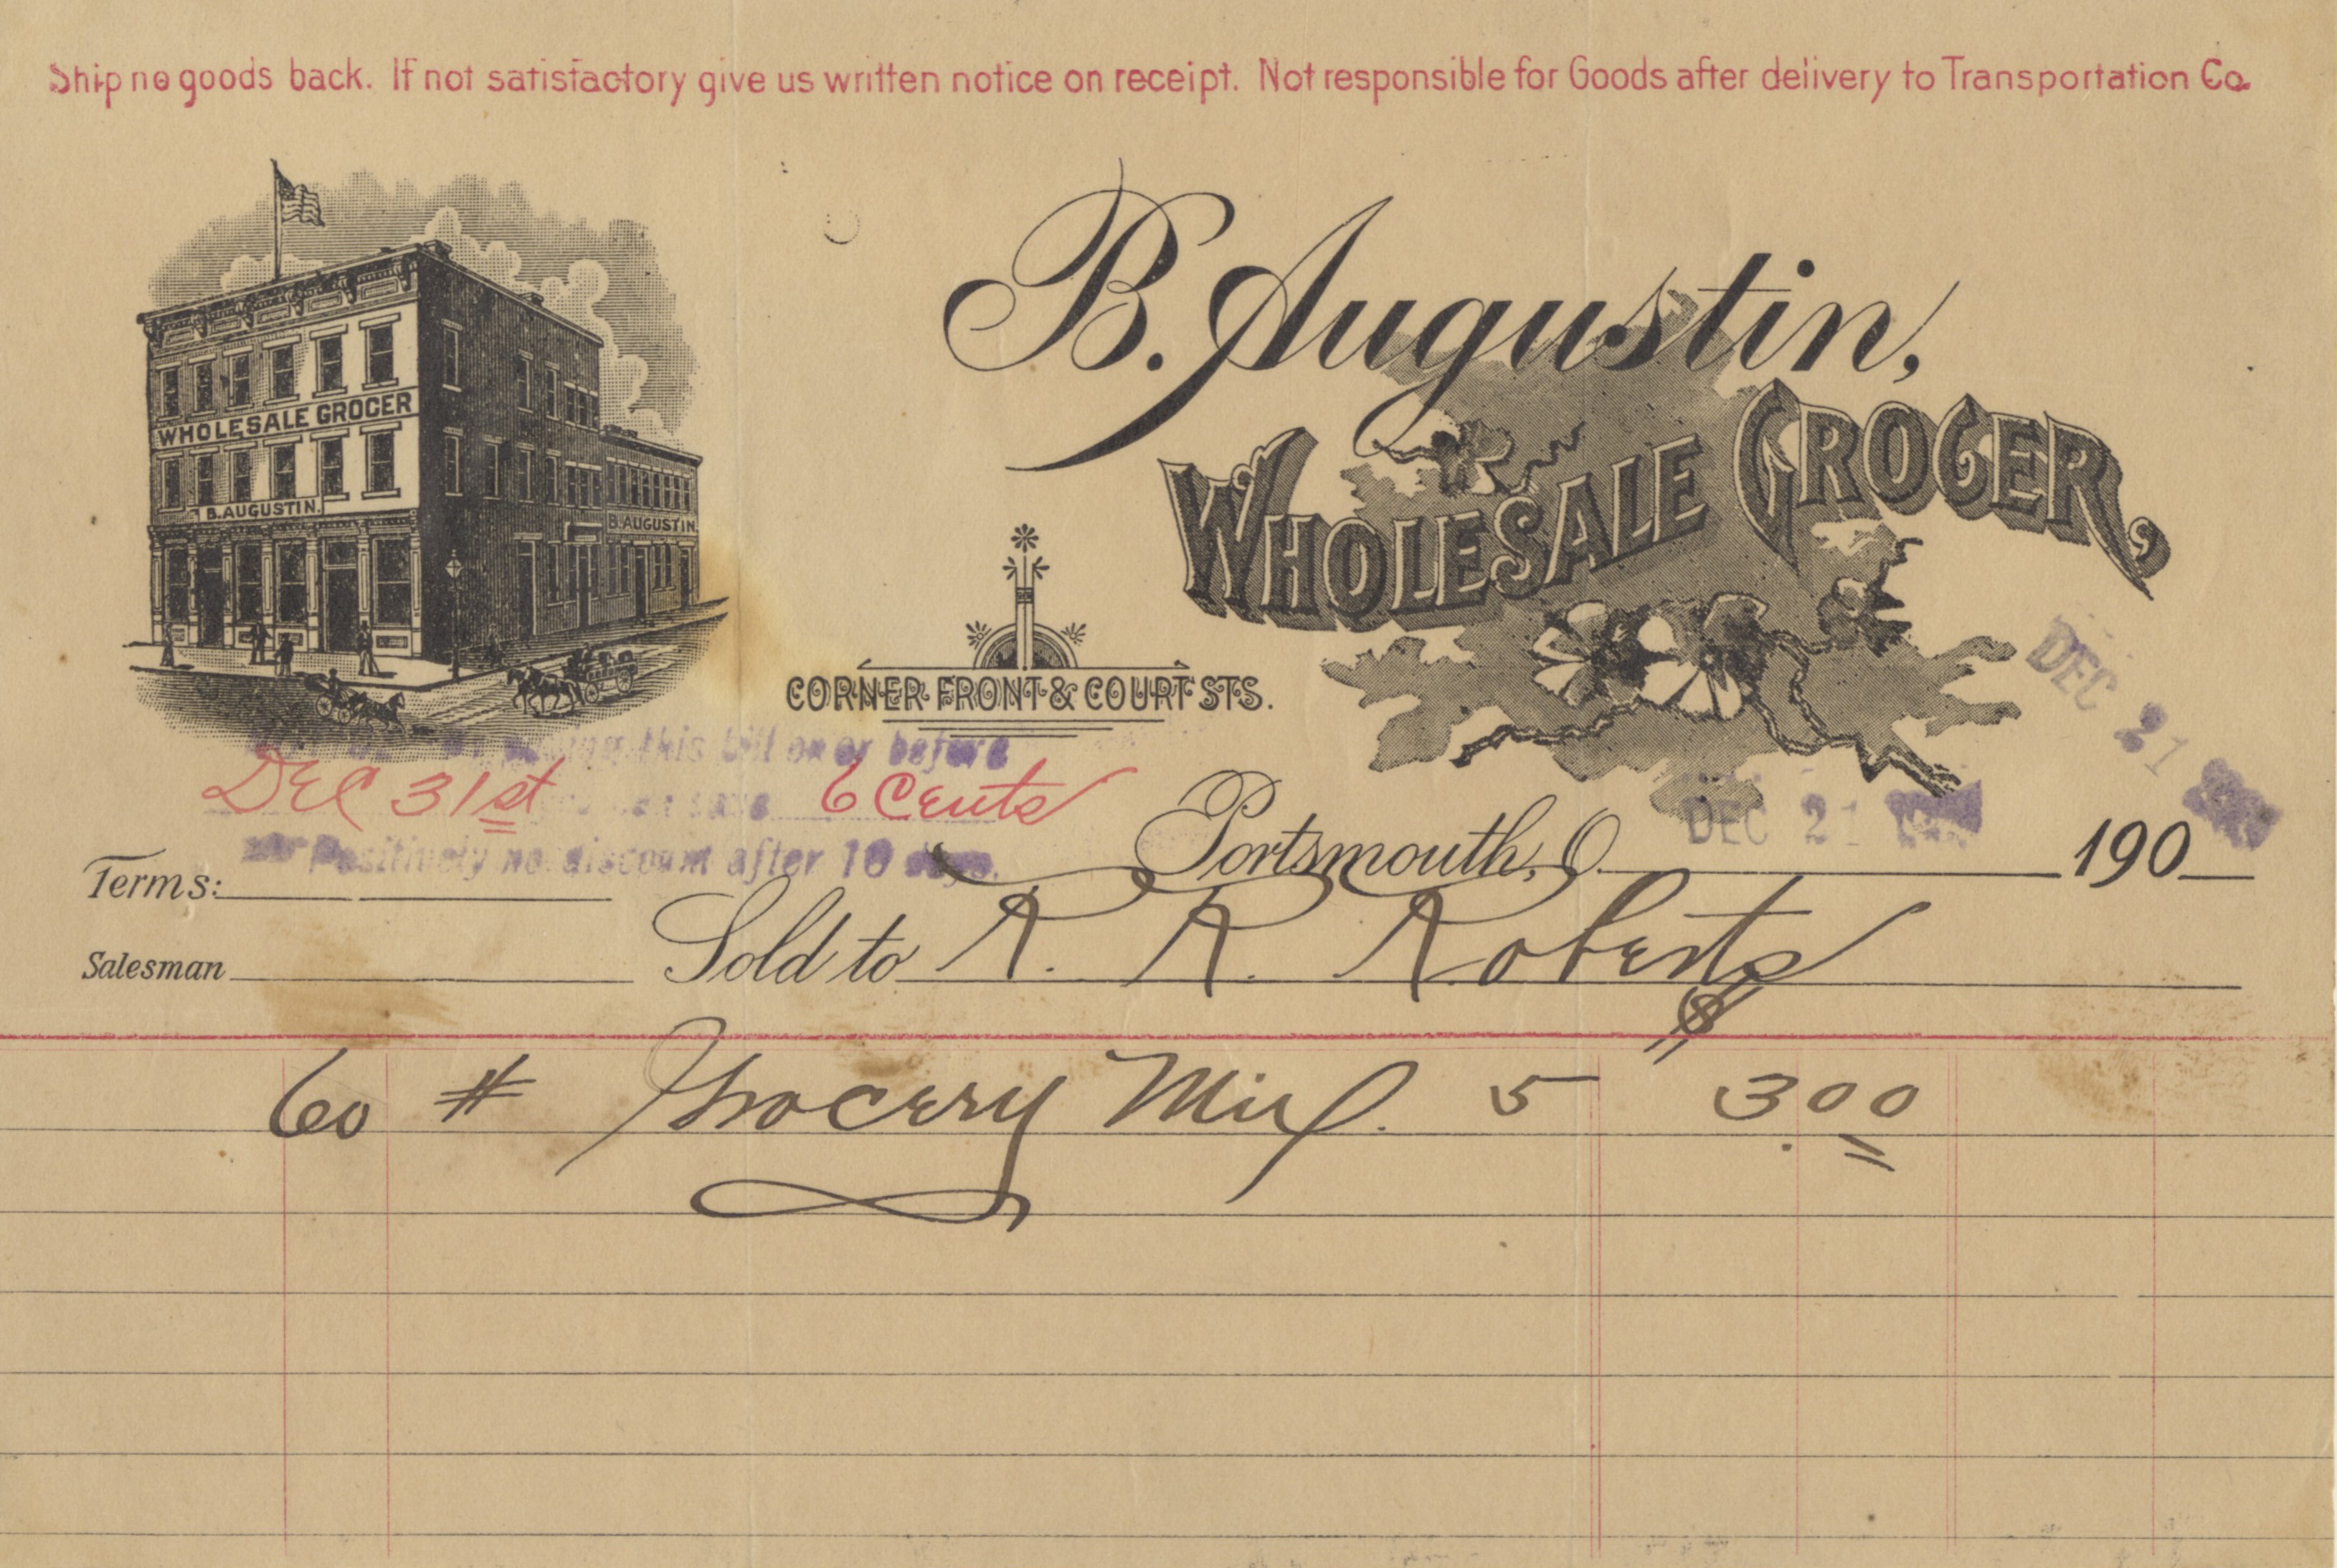 Ship no goods back. If not satisfactory give us written notice on receipt. Not responsible for Goods after delivery to Transportation Co.
WHOLESALE GROCER
B. AUGUSTIN.
B. AUGUSTIN.
B. Augustin,
WHOLESALE GROCER,
CORNER FRONT & COURT STS.
DEC 21
this bill on or before
Dec 31st 6 Cents
Positively no discount after 10 days.
Portsmouth, O. DEC 21 190
Terms:
Salesman
Sold to R. R. Roberts
$
60 # Grocery Mix. 5 3.00